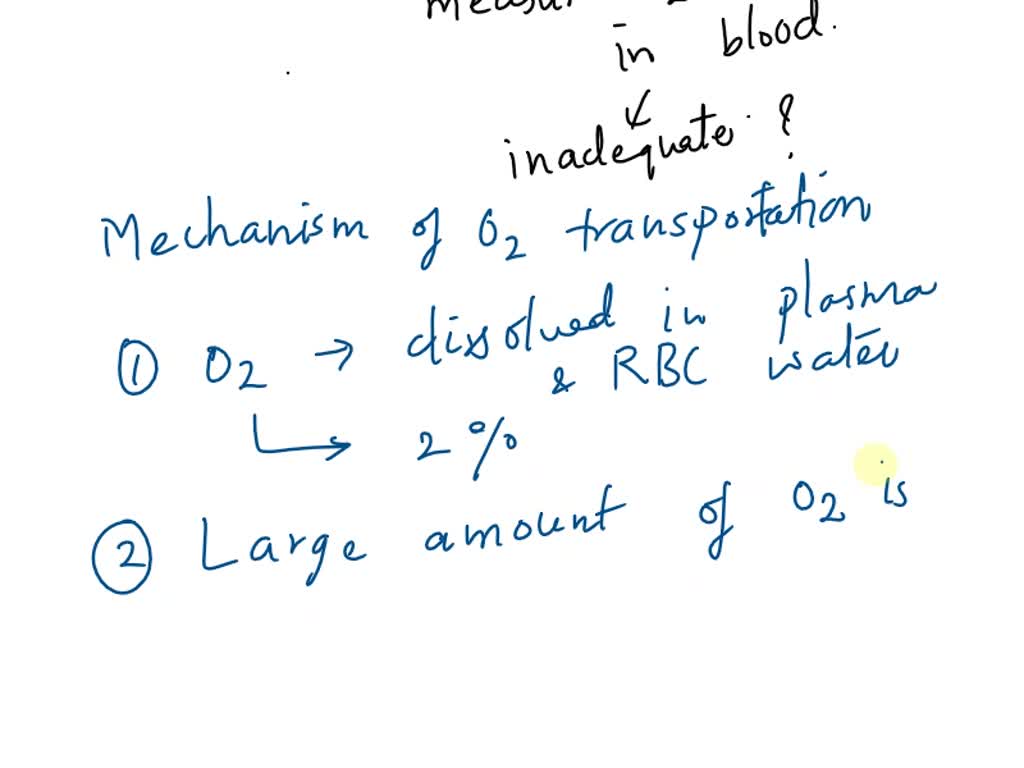 in blood.
↙
inadequate ?
Mechanism of O2 transportation
① O2 → dissolved in plasma
& RBC water
↳ 2%
② Large amount of O2 is